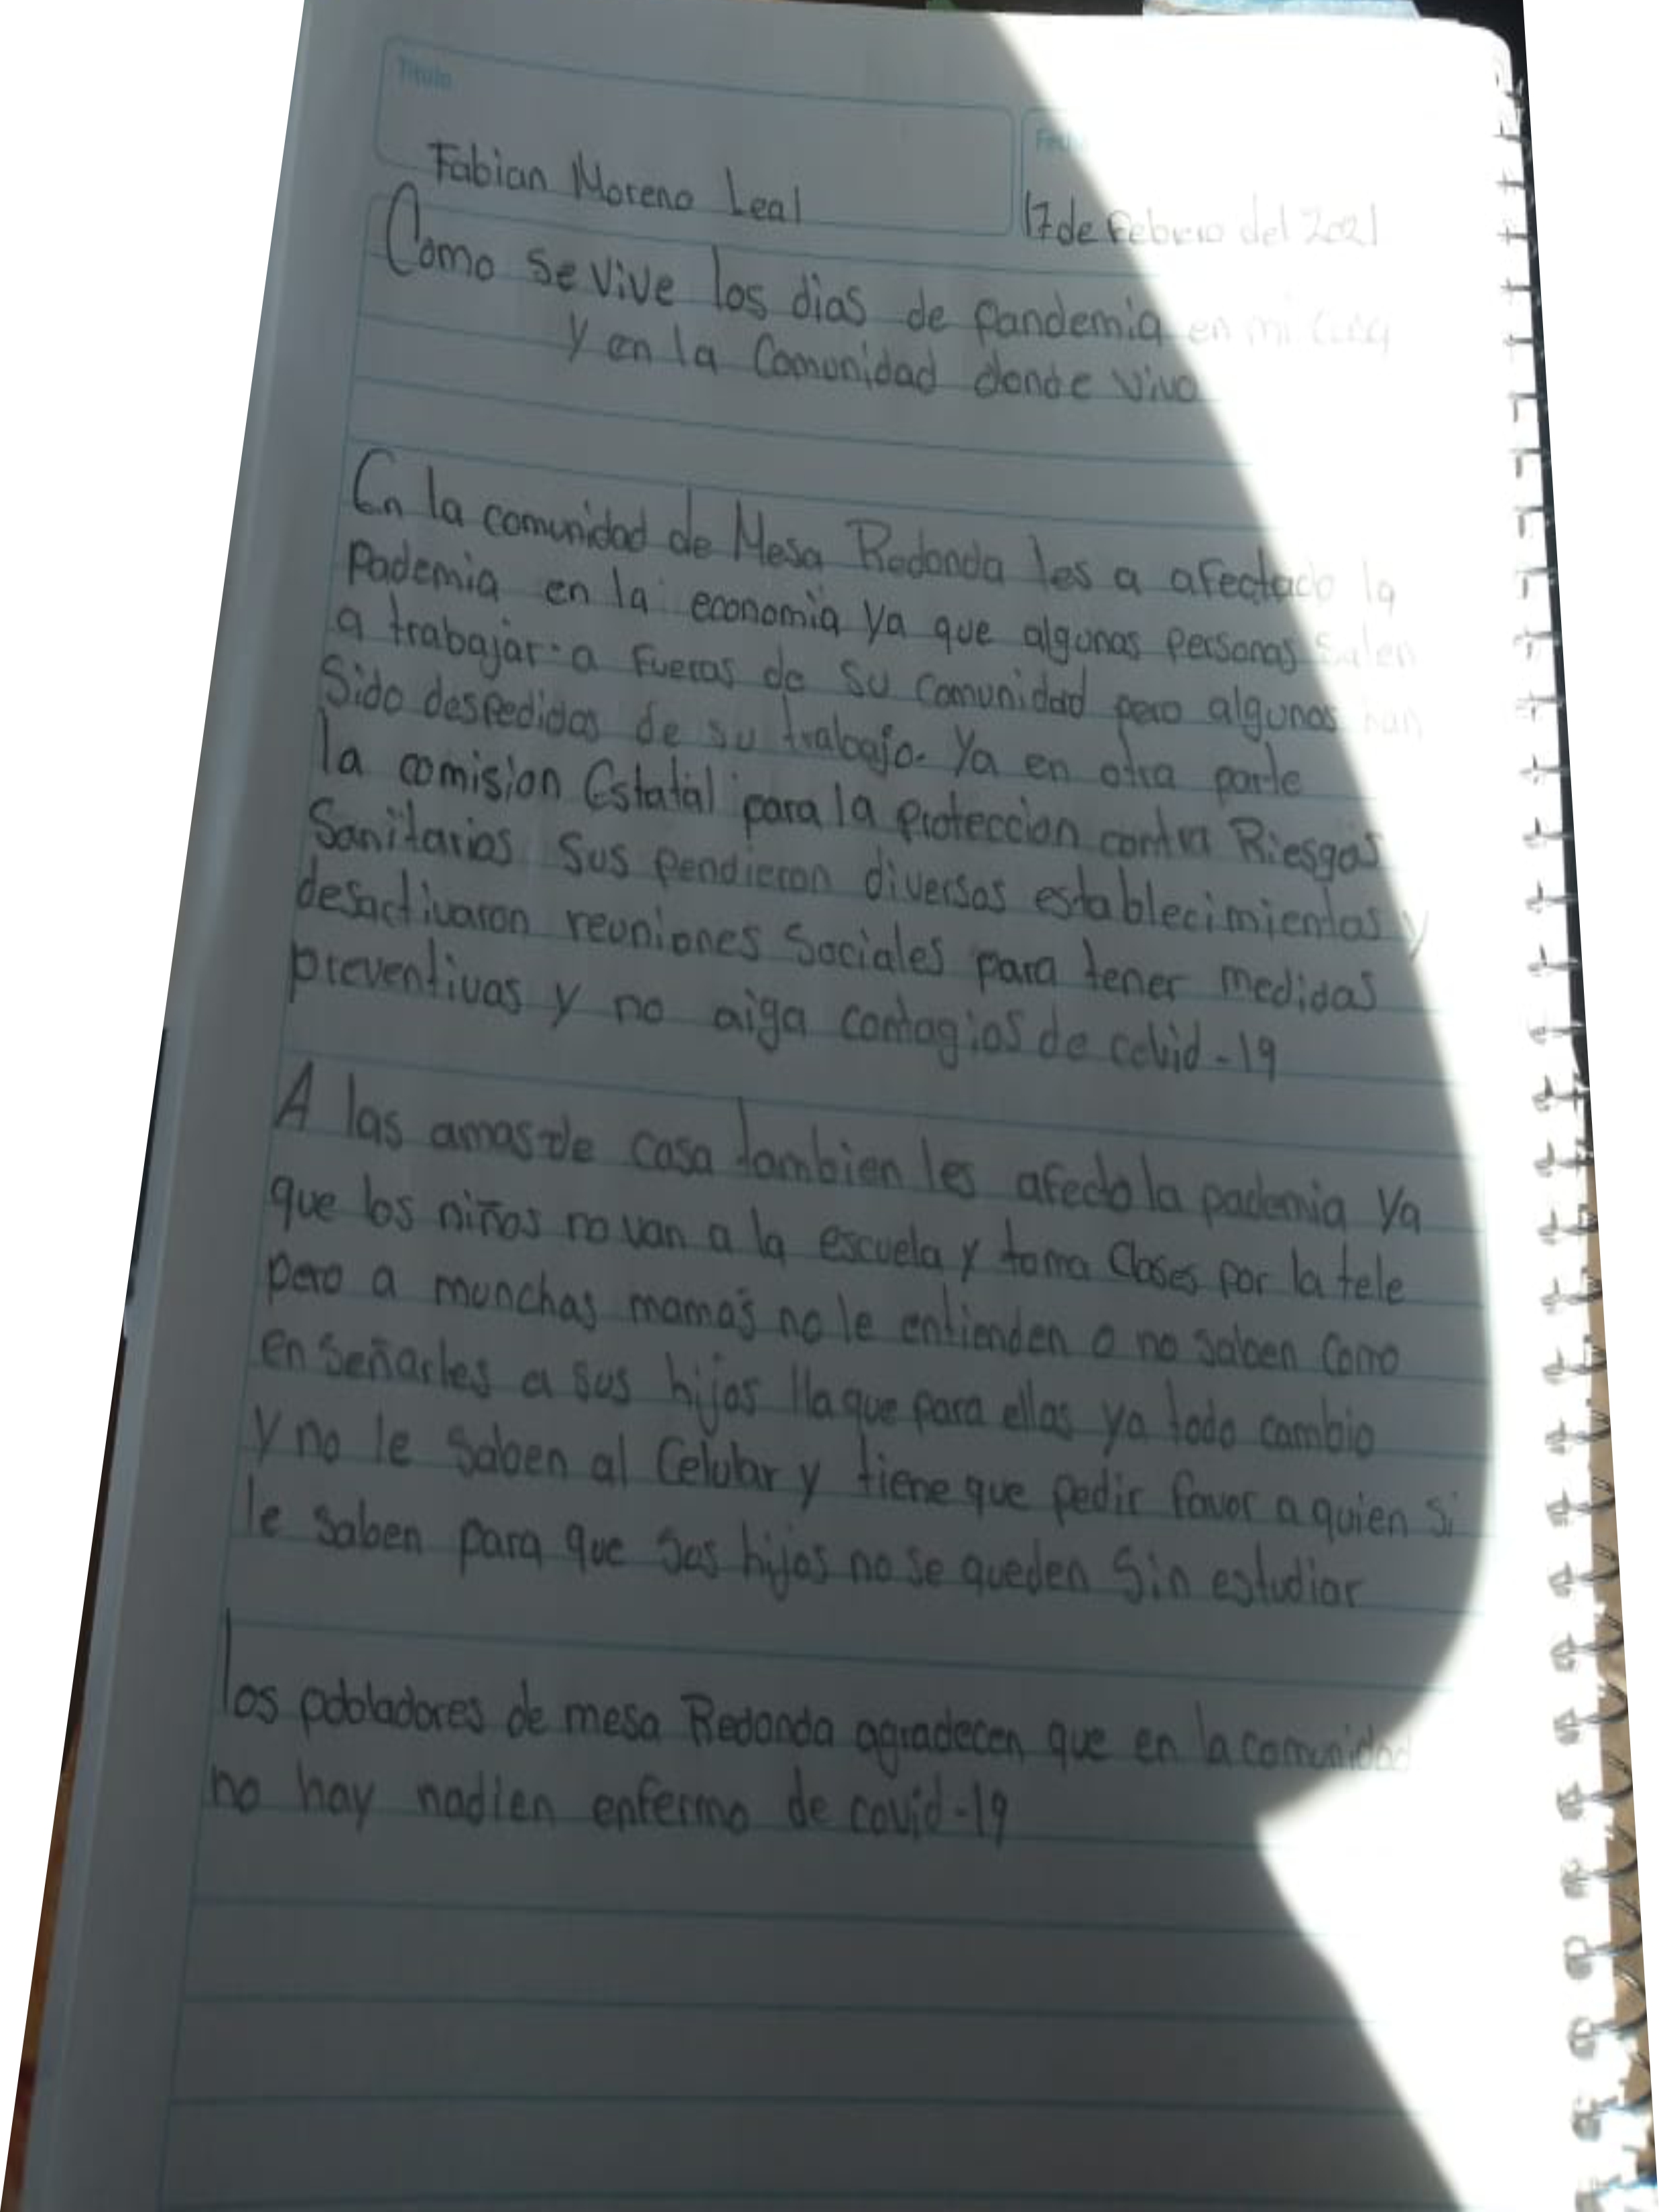 Titulo
Fecha
Fabian Moreno Leal
17 de Febrero del 2021
Como se vive los dias de pandemia en mi casa
y en la Comunidad donde vivo
En la comunidad de Mesa Redonda les a afectado la
Pademia en la economia ya que algunas personas salen
a trabajar a fueras de su comunidad pero algunos han
Sido despedidos de su trabajo. Ya en otra parte
la comision Estatal para la proteccion contra Riesgos
Sanitarios Sus pendieron diversos establecimientos y
desactivaron reuniones Sociales para tener medidas
preventivas y no aiga contagios de covid-19
A las amas de casa tambien les afecto la pademia ya
que los niños no van a la escuela y toma clases por la tele
pero a munchas mamas no le entienden o no saben como
enseñarles a sus hijos lla que para ellas ya todo cambio
y no le saben al Celular y tiene que pedir favor a quien si
le saben para que sus hijos no se queden Sin estudiar
los pobladores de mesa Redonda agradecen que en la comunidad
no hay nadien enfermo de covid-19